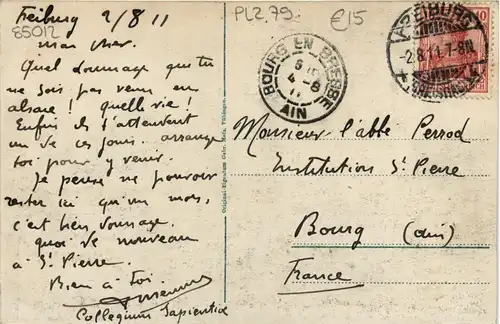 Freiburg 2/8 11
85012
mon cher.
Quel dommage que tu
ne sois pas venu en
alsace! quelle vie!
Enfin ils t'attendent
un de ces jours. arrange
toi pour y venir.
Je pense ne pouvoir
rester ici qu'un mois,
c'est bien dommage.
quoi de nouveau
à St Pierre.
Bien à toi
Collegium Sapientiæ
PL2.79
€15
BOURG EN BRESSE
4-8
11
AIN
FREIBURG
-2.8.11.7-8N.
10
Monsieur l'abbé Perrod
Institution St Pierre
Bourg (ain)
France